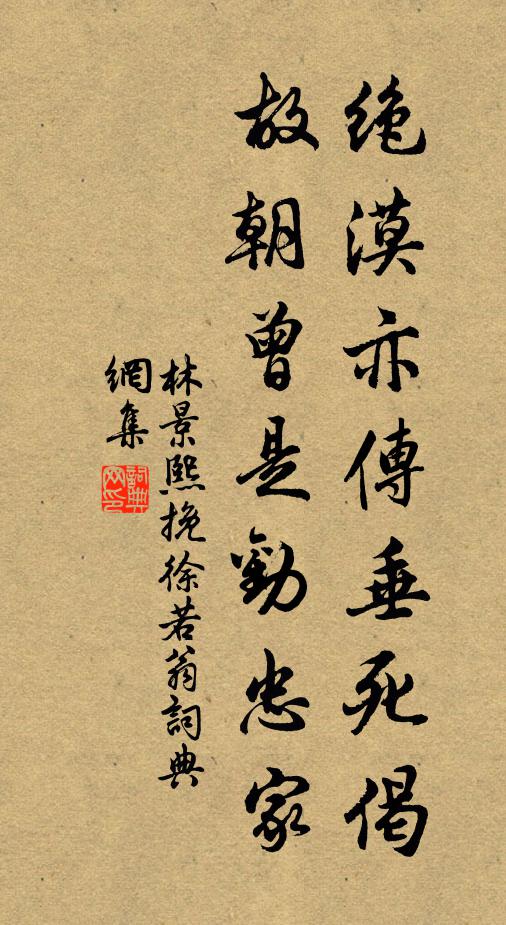 絶漠亦傳垂死偈
故朝曾是勸忠家
林景熙挽徐若翁詞典
網集
詞典網印